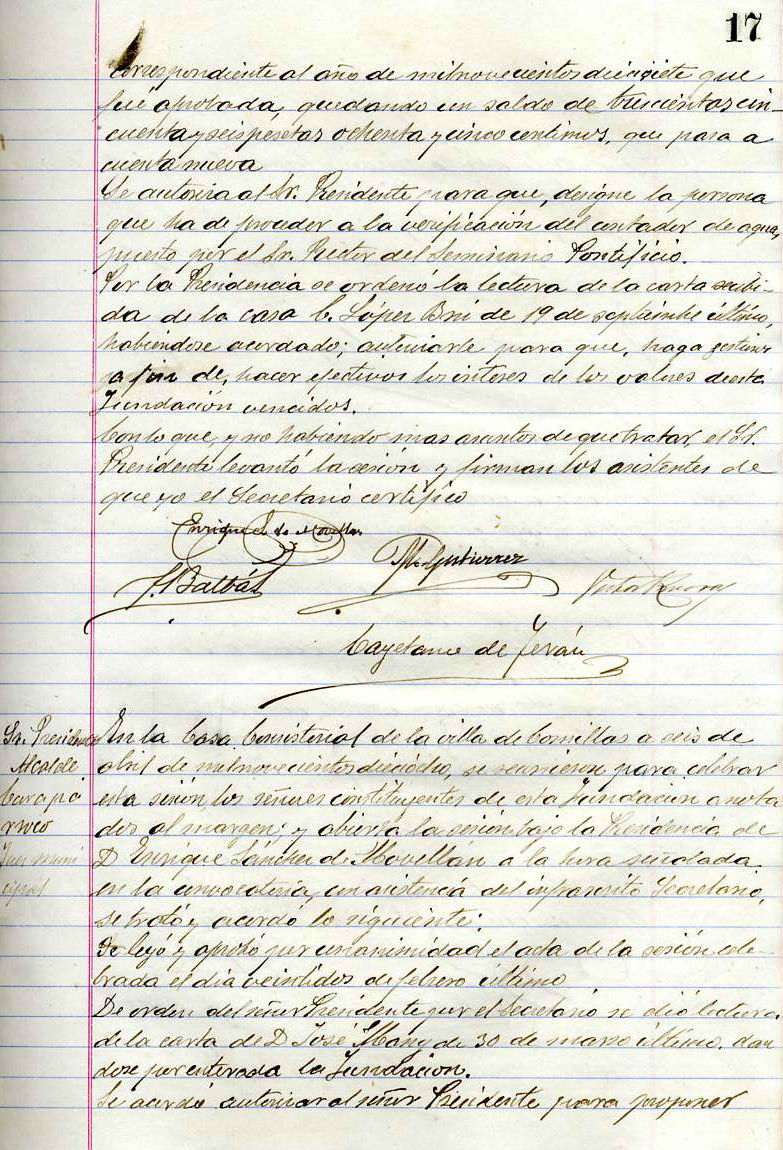 17
correspondiente al año de mil novecientos diecisiete que
fué aprobada, quedando un saldo de trescientas cin-
cuenta y seis pesetas ochenta y cinco centimos, que pasa a
cuenta nueva
Se autoriza al Sr. Presidente para que, designe la persona
que ha de proceder a la verificación del contador de agua,
puesto por el Sr. Rector del Seminario Pontificio.
Por la Presidencia se ordenó la lectura de la carta recibi-
da de la casa C. López Brú de 19 de septiembre último,
habiéndose acordado; autorizarle para que, haga gestiones
a fin de, hacer efectivos los interes de los valores de esta
Fundación vencidos.
Con lo que, y no habiendo mas asuntos de que tratar, el Sr.
Presidente levantó la sesión y firman los asistentes de
que yo el Secretario certifico
Enrique S. de Movellán
M. Gutierrez
J. Balbás
Victor
Cayetano de Terán
Sr. Presidente
Alcalde
Cura pá
rroco
Juez muni
cipal
En la Casa Consistorial de la villa de Comillas a seis de
abril de mil novecientos dieciocho, se reunieron para celebrar
esta sesión, los señores constituyentes de esta Fundación anota
dos al margen; y abierta la sesión bajo la Presidencia de
D Enrique Sánchez de Movellán a la hora señalada
en la convocatoria, con asistencia del infrascrito Secretario,
se trató y acordó lo siguiente:
Se leyó y aprobó por unanimidad el acta de la sesión cele-
brada el dia veintidos de febrero último
De orden del señor Presidente por el Secretario se dió lectura
de la carta de D José de 30 de marzo último, dan
dose por enterada la Fundación.
Se acordó autorizar al señor Presidente para proponer